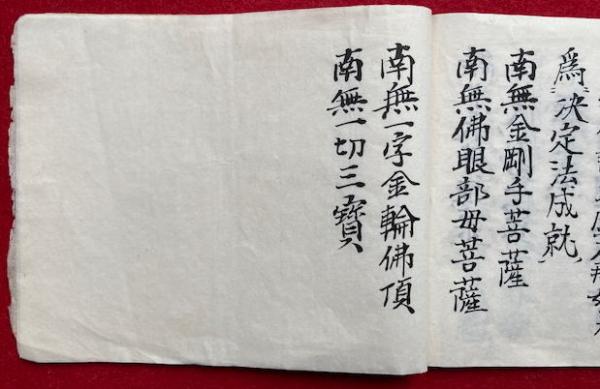 爲決定法成就
南無金剛手菩薩
南無佛眼部母菩薩
南無一字金輪佛頂
南無一切三寳